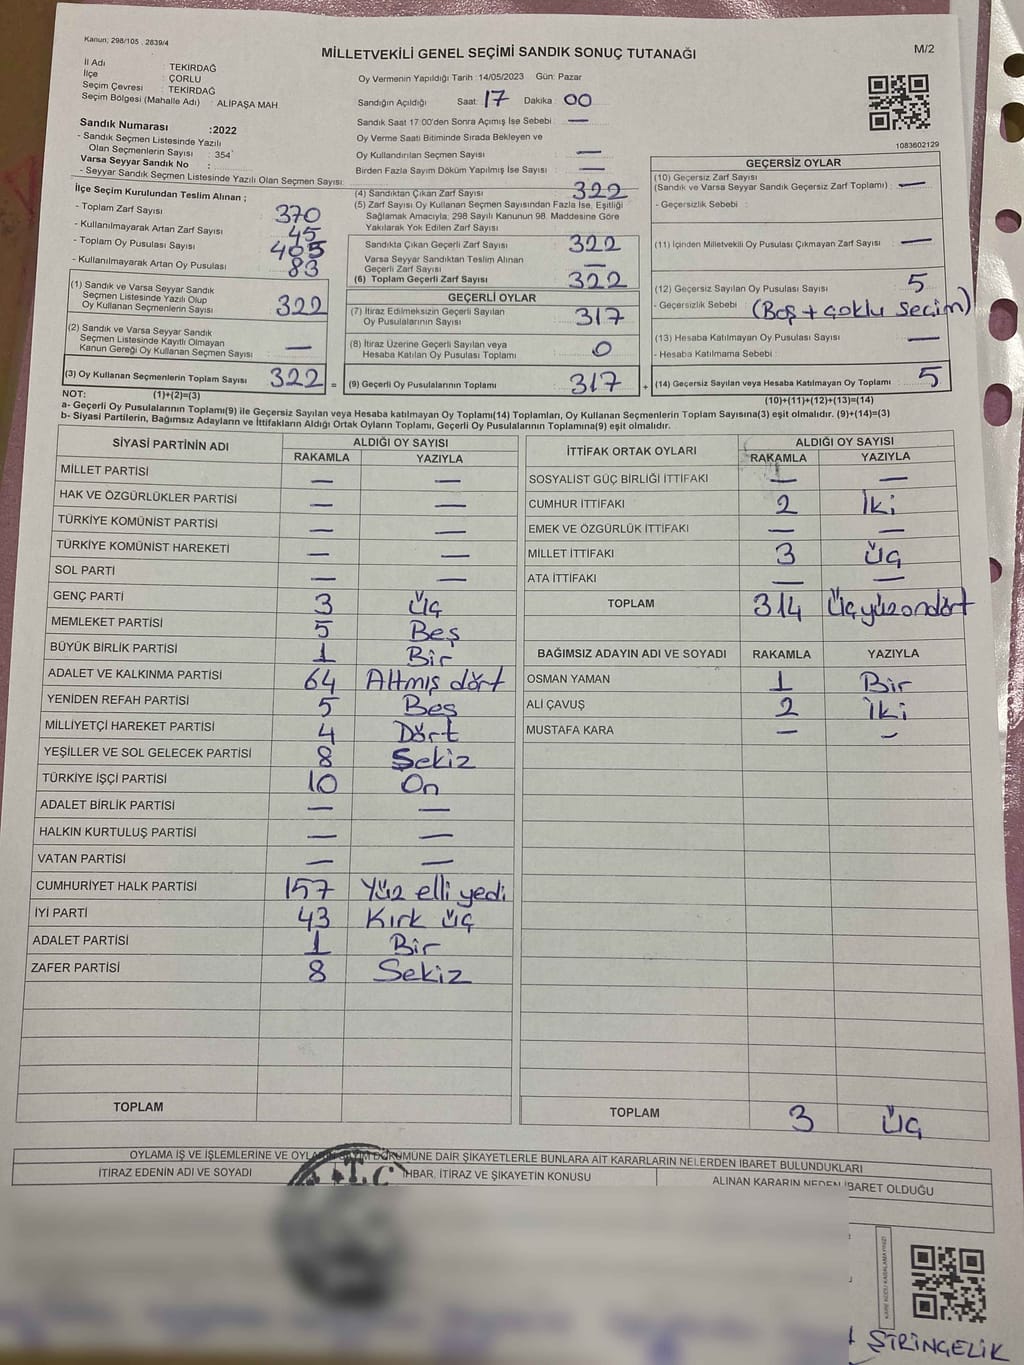 Kanun: 298/105 , 2839/4
MİLLETVEKİLİ GENEL SEÇİMİ SANDIK SONUÇ TUTANAĞI
M/2
İl Adı : TEKİRDAĞ
İlçe : ÇORLU
Seçim Çevresi : TEKİRDAĞ
Seçim Bölgesi (Mahalle Adı) : ALİPAŞA MAH.
Sandık Numarası :2022
- Sandık Seçmen Listesinde Yazılı
Olan Seçmenlerin Sayısı : 354
Varsa Seyyar Sandık No :
- Seyyar Sandık Seçmen Listesinde Yazılı Olan Seçmen Sayısı:
Oy Vermenin Yapıldığı Tarih : 14/05/2023 Gün: Pazar
Sandığın Açıldığı Saat: 17 Dakika : 00
Sandık Saat 17:00'den Sonra Açımış İse Sebebi : —
Oy Verme Saati Bitiminde Sırada Bekleyen ve
Oy Kullandırılan Seçmen Sayısı —
Birden Fazla Sayım Döküm Yapılmış İse Sayısı : —
1083602129
İlçe Seçim Kurulundan Teslim Alınan ;
- Toplam Zarf Sayısı 370
- Kullanılmayarak Artan Zarf Sayısı 45
- Toplam Oy Pusulası Sayısı 405
- Kullanılmayarak Artan Oy Pusulası 83
(1) Sandık ve Varsa Seyyar Sandık
Seçmen Listesinde Yazılı Olup
Oy Kullanan Seçmenlerin Sayısı 322
(2) Sandık ve Varsa Seyyar Sandık
Seçmen Listesinde Kayıtlı Olmayan
Kanun Gereği Oy Kullanan Seçmen Sayısı —
(3) Oy Kullanan Seçmenlerin Toplam Sayısı 322 =
(4) Sandıktan Çıkan Zarf Sayısı 322
(5) Zarf Sayısı Oy Kullanan Seçmen Sayısından Fazla İse, Eşitliği
Sağlamak Amacıyla, 298 Sayılı Kanunun 98. Maddesine Göre
Yakılarak Yok Edilen Zarf Sayısı
Sandıkta Çıkan Geçerli Zarf Sayısı 322
Varsa Seyyar Sandıktan Teslim Alınan
Geçerli Zarf Sayısı —
(6) Toplam Geçerli Zarf Sayısı 322
GEÇERLİ OYLAR
(7) İtiraz Edilmeksizin Geçerli Sayılan
Oy Pusulalarının Sayısı 317
(8) İtiraz Üzerine Geçerli Sayılan veya
Hesaba Katılan Oy Pusulası Toplamı 0
(9) Geçerli Oy Pusulalarının Toplamı 317 +
GEÇERSİZ OYLAR
(10) Geçersiz Zarf Sayısı
(Sandık ve Varsa Seyyar Sandık Geçersiz Zarf Toplamı) : —
- Geçersizlik Sebebi :
(11) İçinden Milletvekili Oy Pusulası Çıkmayan Zarf Sayısı —
(12) Geçersiz Sayılan Oy Pusulası Sayısı 5
- Geçersizlik Sebebi (Boş + çoklu seçim)
(13) Hesaba Katılmayan Oy Pusulası Sayısı —
- Hesaba Katılmama Sebebi :
(14) Geçersiz Sayılan veya Hesaba Katılmayan Oy Toplamı 5
NOT: (1)+(2)=(3)
(10)+(11)+(12)+(13)=(14)
a- Geçerli Oy Pusulalarının Toplamı(9) ile Geçersiz Sayılan veya Hesaba katılmayan Oy Toplamı(14) Toplamları, Oy Kullanan Seçmenlerin Toplam Sayısına(3) eşit olmalıdır. (9)+(14)=(3)
b- Siyasi Partilerin, Bağımsız Adayların ve İttifakların Aldığı Ortak Oyların Toplamı, Geçerli Oy Pusulalarının Toplamına(9) eşit olmalıdır.
SİYASİ PARTİNİN ADI ALDIĞI OY SAYISI
RAKAMLA YAZIYLA
MİLLET PARTİSİ — —
HAK VE ÖZGÜRLÜKLER PARTİSİ — —
TÜRKİYE KOMÜNİST PARTİSİ — —
TÜRKİYE KOMÜNİST HAREKETİ — —
SOL PARTİ — —
GENÇ PARTİ 3 Üç
MEMLEKET PARTİSİ 5 Beş
BÜYÜK BİRLİK PARTİSİ 1 Bir
ADALET VE KALKINMA PARTİSİ 64 Altmış dört
YENİDEN REFAH PARTİSİ 5 Beş
MİLLİYETÇİ HAREKET PARTİSİ 4 Dört
YEŞİLLER VE SOL GELECEK PARTİSİ 8 Sekiz
TÜRKİYE İŞÇİ PARTİSİ 10 On
ADALET BİRLİK PARTİSİ — —
HALKIN KURTULUŞ PARTİSİ — —
VATAN PARTİSİ — —
CUMHURİYET HALK PARTİSİ 157 Yüz elli yedi
İYİ PARTİ 43 Kırk üç
ADALET PARTİSİ 1 Bir
ZAFER PARTİSİ 8 Sekiz
TOPLAM
İTTİFAK ORTAK OYLARI ALDIĞI OY SAYISI
RAKAMLA YAZIYLA
SOSYALİST GÜÇ BİRLİĞİ İTTİFAKI — —
CUMHUR İTTİFAKI 2 İki
EMEK VE ÖZGÜRLÜK İTTİFAKI — —
MİLLET İTTİFAKI 3 Üç
ATA İTTİFAKI — —
TOPLAM 314 Üç yüz ondört
BAĞIMSIZ ADAYIN ADI VE SOYADI RAKAMLA YAZIYLA
OSMAN YAMAN 1 Bir
ALİ ÇAVUŞ 2 İki
MUSTAFA KARA — —
TOPLAM 3 Üç
OYLAMA İŞ VE İŞLEMLERİNE VE OYLARIN SAYIM DÖKÜMÜNE DAİR ŞİKAYETLERLE BUNLARA AİT KARARLARIN NELERDEN İBARET BULUNDUKLARI
İTİRAZ EDENİN ADI VE SOYADI İHBAR, İTİRAZ VE ŞİKAYETİN KONUSU ALINAN KARARIN NEDEN İBARET OLDUĞU
T.C
KARE KODU KARALAMAYINIZ!
ŞİRİNGELİK